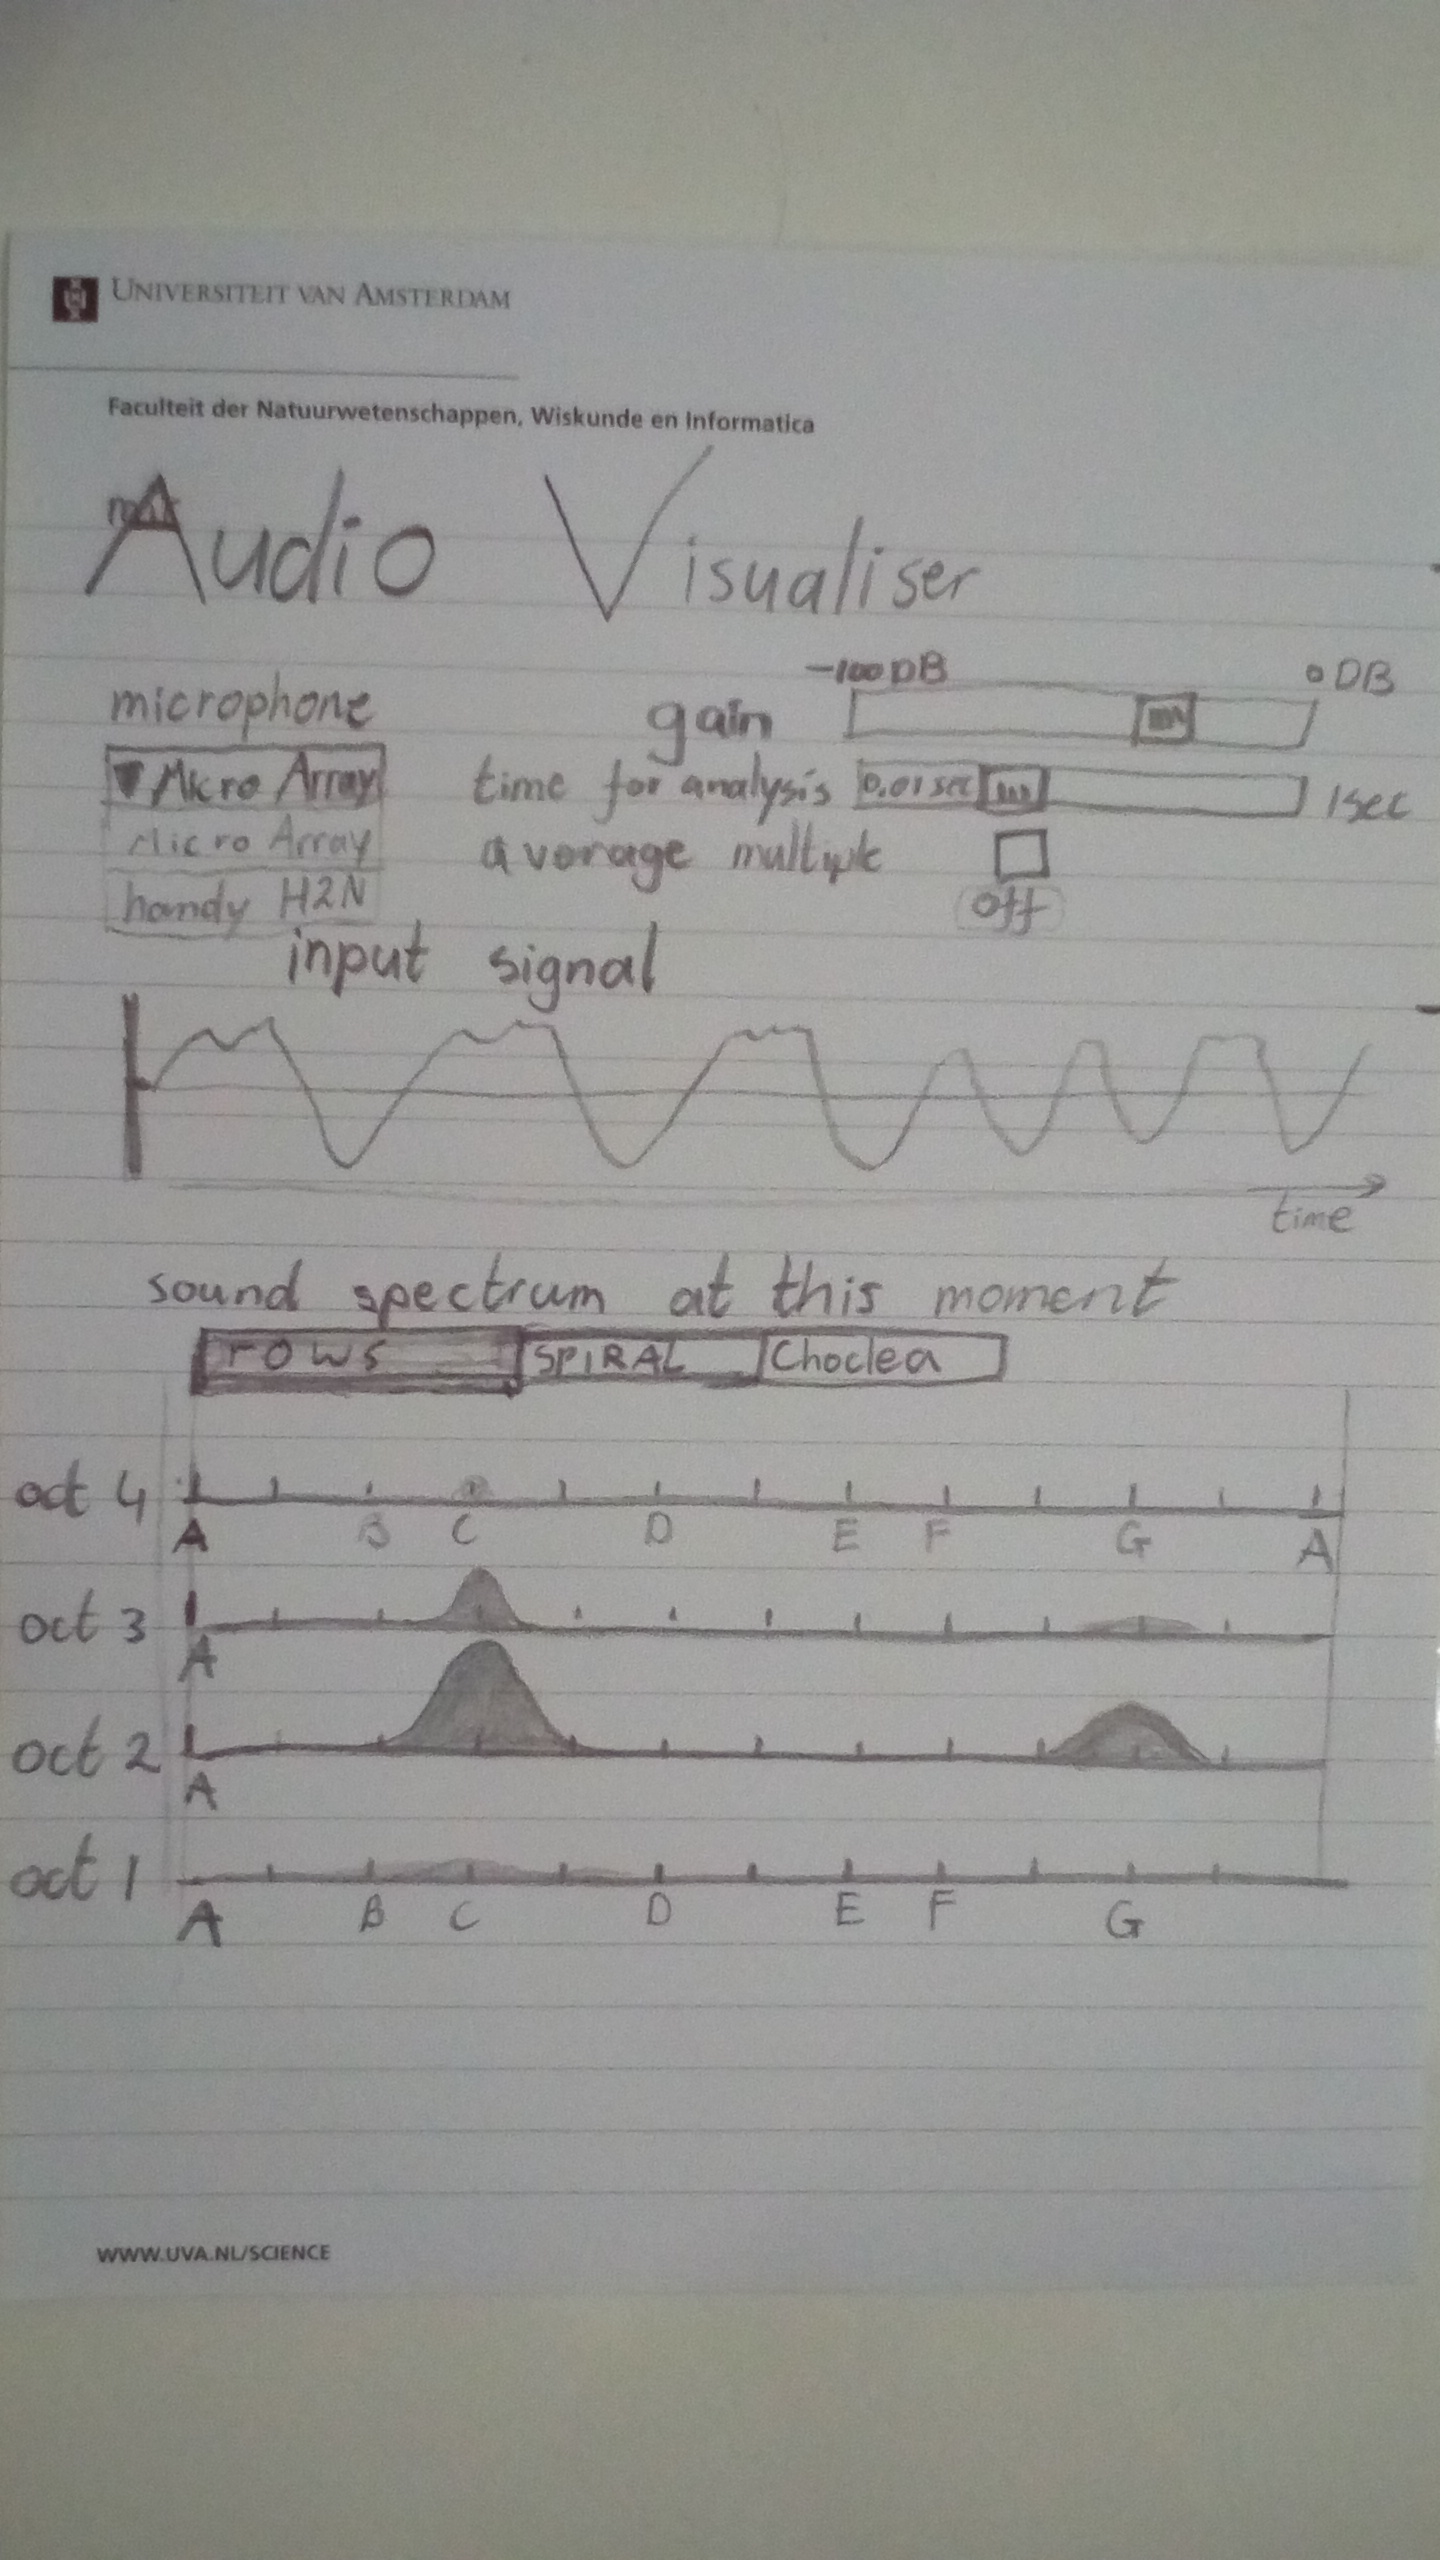 UNIVERSITEIT VAN AMSTERDAM
Faculteit der Natuurwetenschappen, Wiskunde en Informatica
Audio Visualiser
-100 DB 0 DB
microphone gain
▼ Micro Array time for analysis 0.01 sec 1 sec
Micro Array average multiple
handy H2N off
input signal
time
sound spectrum at this moment
rows SPIRAL Choclea
oct 4
A B C D E F G A
oct 3
A
oct 2
A
oct 1
A B C D E F G
WWW.UVA.NL/SCIENCE